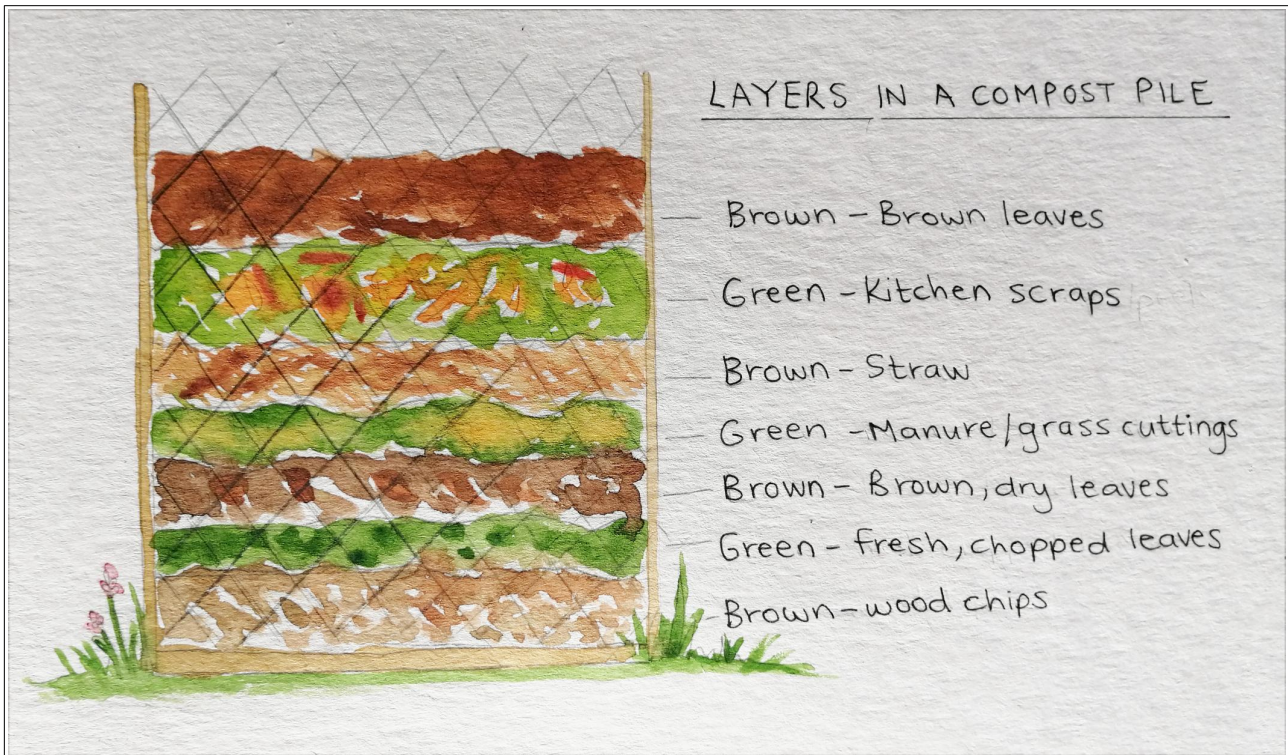 LAYERS IN A COMPOST PILE
Brown - Brown leaves
Green - Kitchen scraps
Brown - Straw
Green - Manure/grass cuttings
Brown - Brown, dry leaves
Green - fresh, chopped leaves
Brown - wood chips